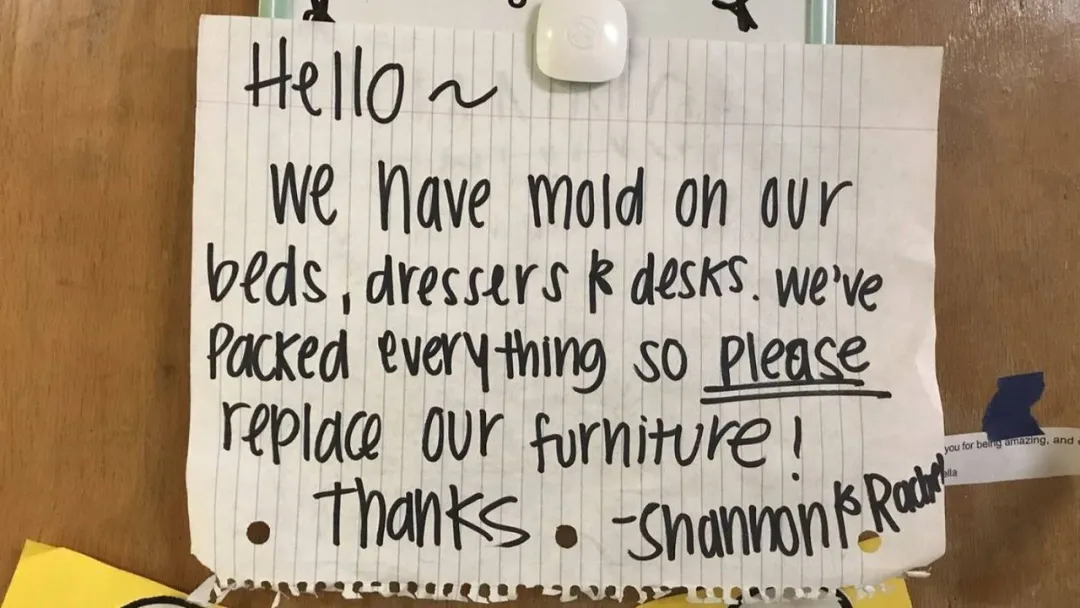 Hello ~
We have mold on our
beds, dressers & desks. We've
Packed everything so please
replace our furniture!
Thanks
-Shannon & Rachel
you for being amazing, and
ella